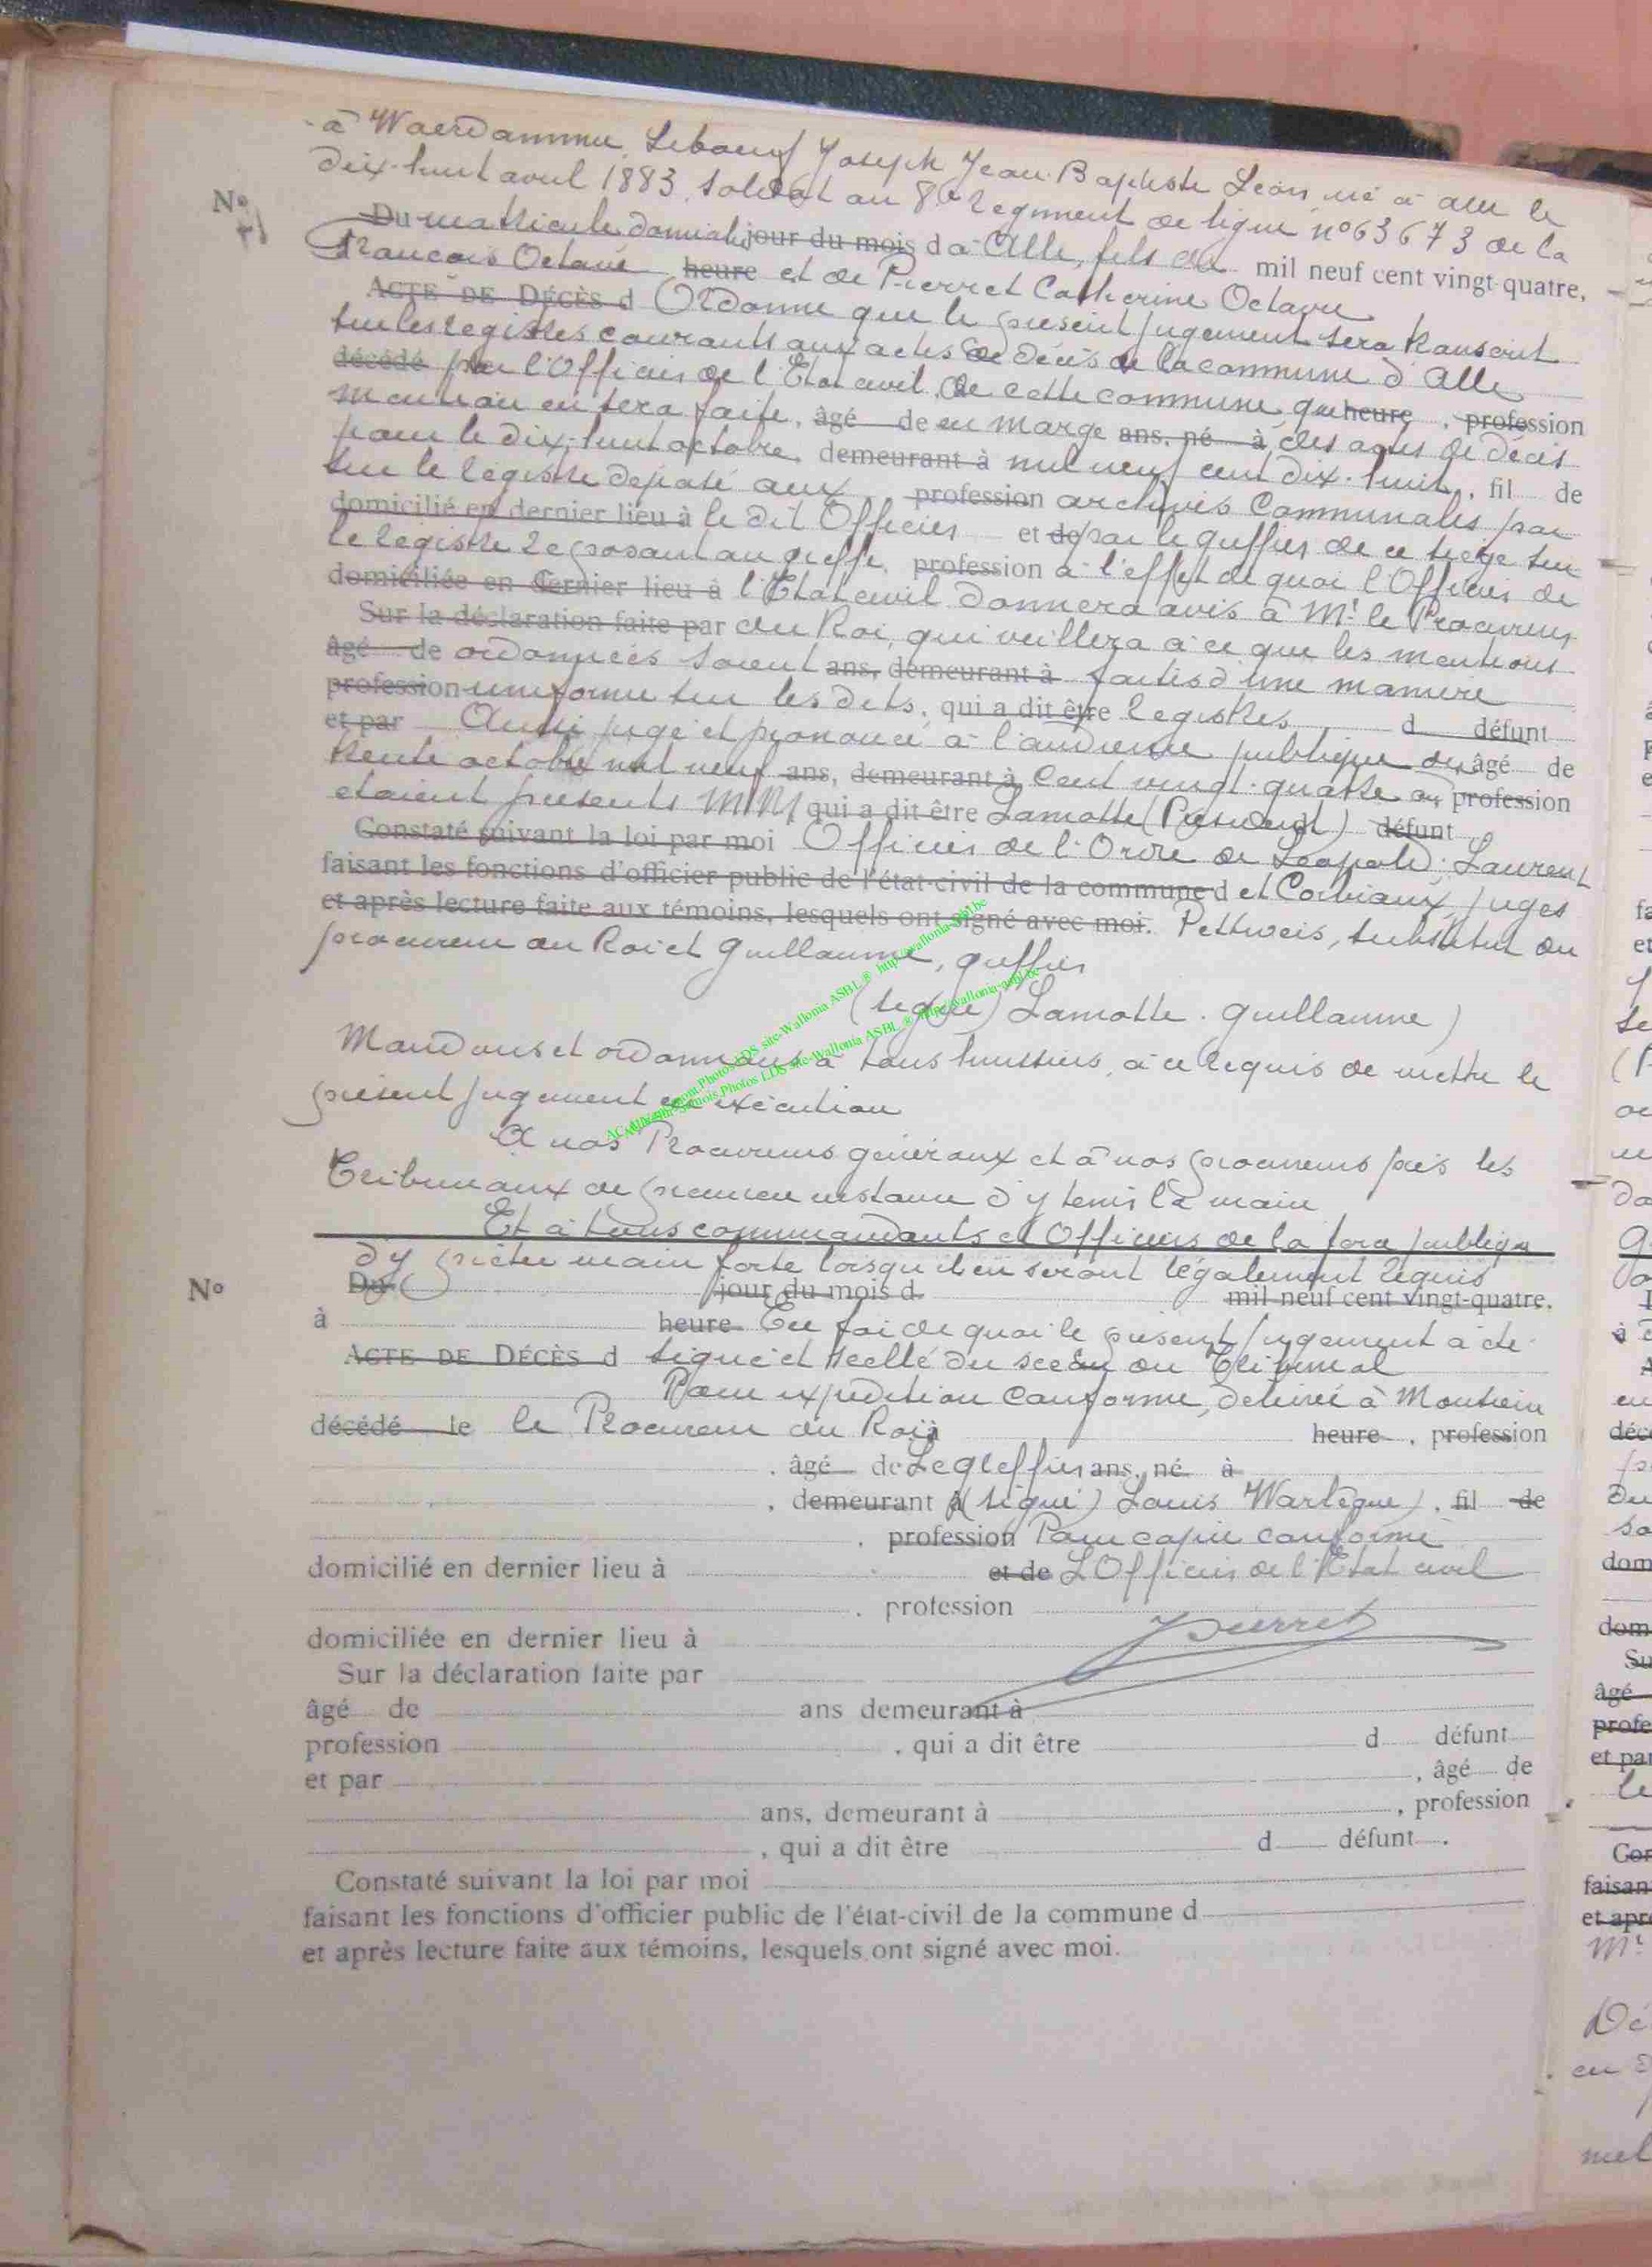 à Waerdamme, Leboeuf Joseph Jean-Baptiste Léon, né à Alle le
dix-huit avril 1883, soldat au 8e régiment de ligne n° 63673 de la
N° Du matricule, domicilié jour du mois d à Alle, fils de mil neuf cent vingt-quatre,
François Octave heure et de Pierret Catherine Octavie
ACTE DE DÉCÈS d Ordonne que le présent jugement sera transcrit
sur les registres courants aux actes de décès de la commune d'Alle
décédé par l'Officier de l'Etat civil de cette commune, que heure , profession
mention en sera faite, âgé de en marge ans, né à des actes de décès
pour le dix-huit octobre, demeurant à mil neuf cent dix-huit, fil de
sur le registre déposé aux profession archives Communales par
domicilié en dernier lieu à le dit Officier et de par le greffier de ce siège sur
le registre reposant au greffe, profession à l'effet de quoi l'Officier de
domiciliée en dernier lieu à l'Etat civil donnera avis à Mr le Procureur
Sur la déclaration faite par du Roi, qui veillera à ce que les mentions
âgé de ordonnées soient ans, demeurant à faites d'une manière
profession uniforme sur les dits, qui a dit être registres d défunt
et par Ainsi jugé et prononcé à l'audience publique du âgé de
trente octobre mil neuf ans, demeurant à cent vingt-quatre où profession
étaient présents MM qui a dit être Lamotte (Président) défunt
Constaté suivant la loi par moi Officier de l'Ordre de Léopold; Laurent
faisant les fonctions d'officier public de l'état-civil de la commune d et Corbiaux, juges
et après lecture faite aux témoins, lesquels ont signé avec moi. Pettweis, substitut du
procureur du Roi et Guillaume, greffier
(signé) Lamotte. Guillaume)
Mandons et ordonnons à tous huissiers, à ce requis de mettre le
présent jugement en exécution
A nos Procureurs généraux et à nos procureurs près les
Tribunaux de première instance d'y tenir la main
Et à tous commandants et Officiers de la force publique
d'y prêter main forte lorsqu'ils en seront légalement requis
N° Du jour du mois d mil neuf cent vingt-quatre,
à heure En foi de quoi le présent jugement a été
ACTE DE DÉCÈS d signé et scellé du sceau du Tribunal
Pour expédition conforme, délivré à Monsieur
décédé le le Procureur du Roi à heure , profession
, âgé de Le greffier ans, né à
, demeurant à (signé) Louis Warlègue), fil de
, profession Pour copie conforme
domicilié en dernier lieu à et de L'Officier de l'Etat civil
, profession
domiciliée en dernier lieu à Pierret
Sur la déclaration faite par
âgé de ans demeurant à
profession , qui a dit être d défunt
et par , âgé de
ans, demeurant à , profession
, qui a dit être d défunt .
Constaté suivant la loi par moi
faisant les fonctions d'officier public de l'état-civil de la commune d
et après lecture faite aux témoins, lesquels ont signé avec moi.